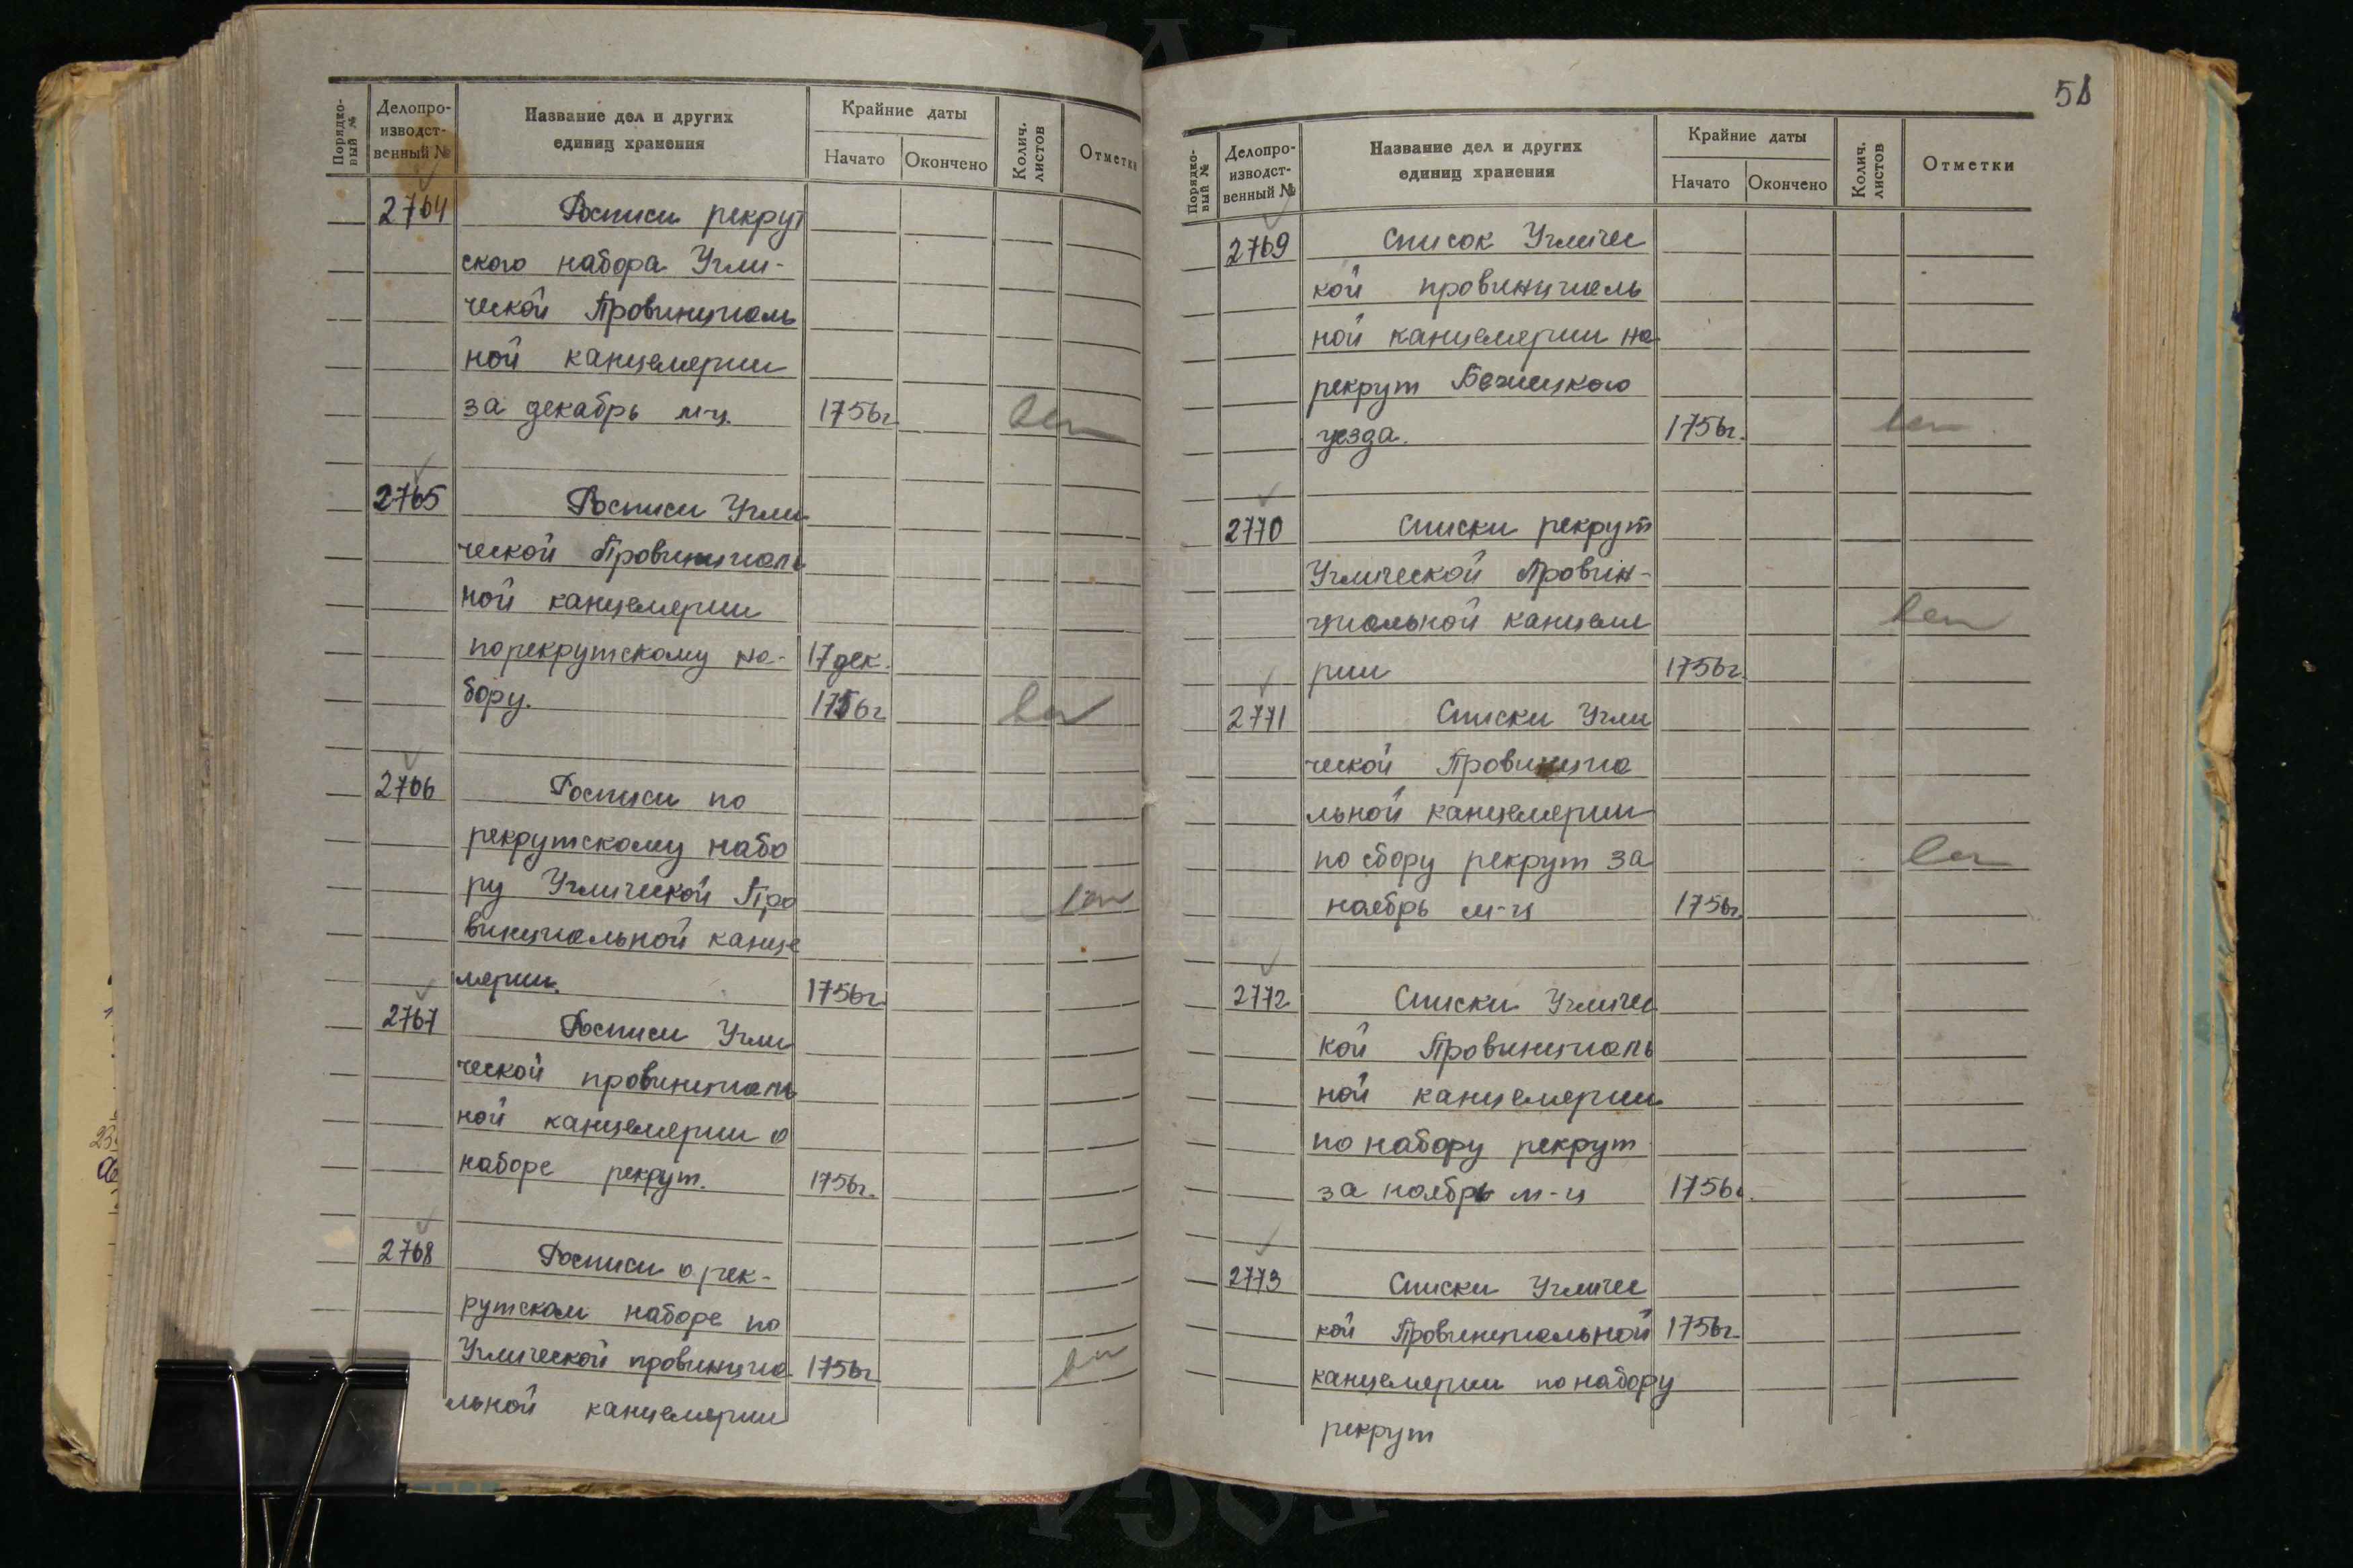 Порядко-
вый №
Делопро-
изводст-
венный №
Название дел и других
единиц хранения
Крайние даты
Начато Окончено
Колич.
листов
Отметки
2764 Росписи рекрут
ского набора Угли-
ческой Провинциаль
ной канцелярии
за декабрь м-ц. 1756г.
2765 Росписи Угли
ческой Провинциаль
ной канцелярии
по рекрутскому на- 17 дек.
бору. 1756г
2766 Росписи по
рекрутскому набо
ру Углической Про
винциальной канце
лярии. 1756г
2767 Росписи Угли
ческой провинциаль
ной канцелярии о
наборе рекрут. 1756г.
2768 Росписи о рек-
рутском наборе по
Углической провинциа 1756г
льной канцелярии
58
Порядко-
вый №
Делопро-
изводст-
венный №
Название дел и других
единиц хранения
Крайние даты
Начато Окончено
Колич.
листов
Отметки
2769 Список Угличес
кой провинциаль
ной канцелярии на
рекрут Бежецкого
уезда. 1756г.
2770 Списки рекрут
Углической Провин-
циальной канцеля
рии 1756г.
2771 Списки Угли
ческой Провинциа
льной канцелярии
по сбору рекрут за
ноябрь м-ц 1756г.
2772 Списки Угличес
кой Провинциаль
ной канцелярии
по набору рекрут
за ноябрь м-ц 1756г.
2773 Списки Угличес
кой Провинциальной 1756г.
канцелярии по набору
рекрут